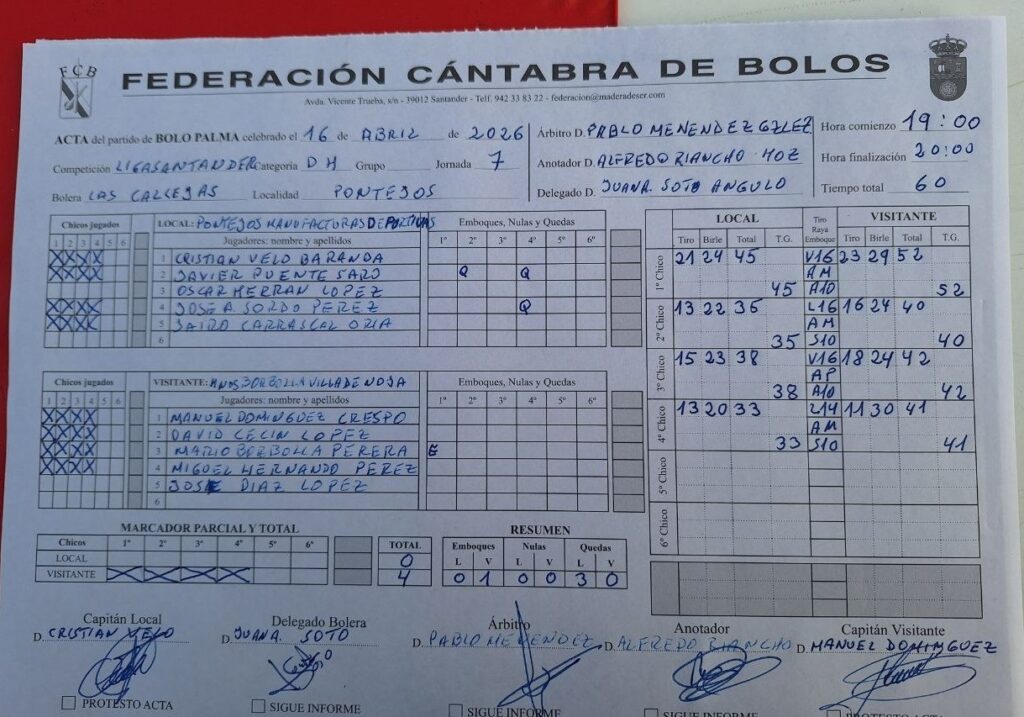 FCB
FEDERACIÓN CÁNTABRA DE BOLOS
Avda. Vicente Trueba, s/n - 39012 Santander - Telf. 942 33 83 22 - federacion@maderadeser.com
ACTA del partido de BOLO PALMA celebrado el 16 de ABRIL de 2026
Competición LIGASANTANDER Categoría DH Grupo Jornada 7
Bolera LAS CALLEJAS Localidad PONTEJOS
Árbitro D. PABLO MENENDEZ GZLEZ
Anotador D. ALFREDO RIANCHO HOZ
Delegado D. JUANA. SOTO ANGULO
Hora comienzo 19:00
Hora finalización 20:00
Tiempo total 60
Chicos jugados LOCAL: PONTEJOS MANUFACTURAS DEPORTIVAS Emboques, Nulas y Quedas
1 2 3 4 5 6 Jugadores: nombre y apellidos 1º 2º 3º 4º 5º 6º
X X X X 1 CRISTIAN VELO BARANDA
X X X X 2 JAVIER PUENTE SARO Q Q
3 OSCAR HERRAN LOPEZ
X X X X 4 JOSE A. SORDO PEREZ Q
X X X X 5 JAIRO CARRASCAL ORIA
6
Chicos jugados VISITANTE: HNOS BORBOLLA VILLA DE NOJA Emboques, Nulas y Quedas
1 2 3 4 5 6 Jugadores: nombre y apellidos 1º 2º 3º 4º 5º 6º
X X X X 1 MANUEL DOMINGUEZ CRESPO
X X X X 2 DAVID CECIN LOPEZ
X X X X 3 MARIO BORBOLLA PERERA E
X X X X 4 MIGUEL HERNANDO PEREZ
5 JOSE DIAZ LOPEZ
6
LOCAL Tiro Raya Emboque VISITANTE
Tiro Birle Total T.G. Tiro Birle Total T.G.
1º Chico 21 24 45 V16 23 29 52
AM
45 A10 52
2º Chico 13 22 35 L16 16 24 40
AM
35 S10 40
3º Chico 15 23 38 V16 18 24 42
AP
38 A10 42
4º Chico 13 20 33 L14 11 30 41
AM
33 S10 41
5º Chico
6º Chico
MARCADOR PARCIAL Y TOTAL
Chicos 1º 2º 3º 4º 5º 6º TOTAL
LOCAL 0
VISITANTE X X X X 4
RESUMEN
Emboques Nulas Quedas
L V L V L V
0 1 0 0 3 0
Capitán Local
D. CRISTIAN VELO
PROTESTO ACTA
Delegado Bolera
D. JUANA. SOTO
SIGUE INFORME
Árbitro
D. PABLO MENENDEZ
SIGUE INFORME
Anotador
D. ALFREDO RIANCHO
SIGUE INFORME
Capitán Visitante
D. MANUEL DOMINGUEZ
PROTESTO ACTA